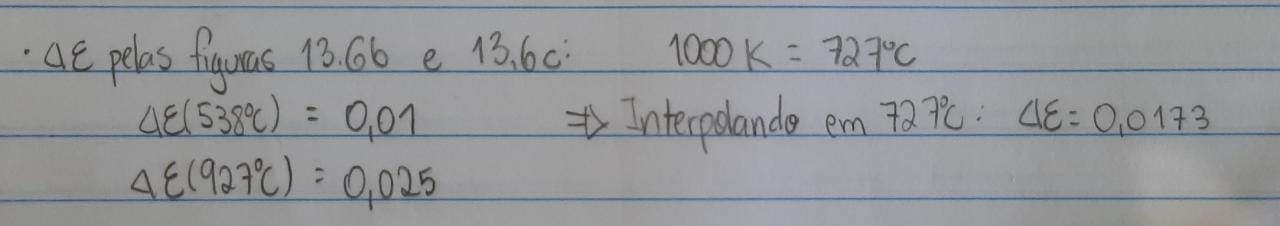 · Δε pelas figuras 13.6b e 13.6c: 1000 K = 727°C
Δε(538°C) = 0,01 ⇒ Interpolando em 727°C: Δε = 0,0173
Δε(927°C) = 0,025